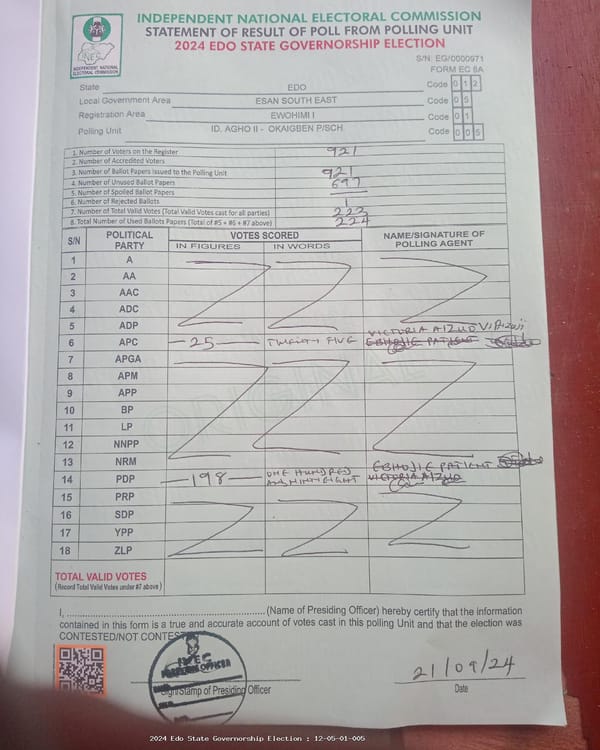 INDEPENDENT NATIONAL ELECTORAL COMMISSION
STATEMENT OF RESULT OF POLL FROM POLLING UNIT
2024 EDO STATE GOVERNORSHIP ELECTION
INEC
INDEPENDENT NATIONAL ELECTORAL COMMISSION
S/N: EG/0000971
FORM EC 8A
State EDO Code 0 1 2
Local Government Area ESAN SOUTH EAST Code 0 5
Registration Area EWOHIMI I Code 0 1
Polling Unit ID. AGHO II - OKAIGBEN P/SCH Code 0 0 5
1. Number of Voters on the Register 921
2. Number of Accredited Voters
3. Number of Ballot Papers Issued to the Polling Unit 921
4. Number of Unused Ballot Papers 697
5. Number of Spoiled Ballot Papers
6. Number of Rejected Ballots 1
7. Number of Total Valid Votes (Total Valid Votes cast for all parties) 223
8. Total Number of Used Ballots Papers (Total of #5 + #6 + #7 above) 224
S/N POLITICAL PARTY VOTES SCORED NAME/SIGNATURE OF POLLING AGENT
IN FIGURES IN WORDS
1 A
2 AA
3 AAC
4 ADC
5 ADP
VICTORIA AIZUD
6 APC 25 TWENTY FIVE EBHOJIE PATIENT
7 APGA
8 APM
9 APP
10 BP
11 LP
12 NNPP
13 NRM
EBHOJIE PATIENT
14 PDP 198 ONE HUNDRED AND NINTY EIGHT VICTORIA AIZUD
15 PRP
16 SDP
17 YPP
18 ZLP
TOTAL VALID VOTES
(Record Total Valid Votes under #7 above)
I, (Name of Presiding Officer) hereby certify that the information
contained in this form is a true and accurate account of votes cast in this polling Unit and that the election was
CONTESTED/NOT CONTESTED
INEC
PRESIDING OFFICER
Sign/Stamp of Presiding Officer
21/09/24
Date
2024 Edo State Governorship Election : 12-05-01-005